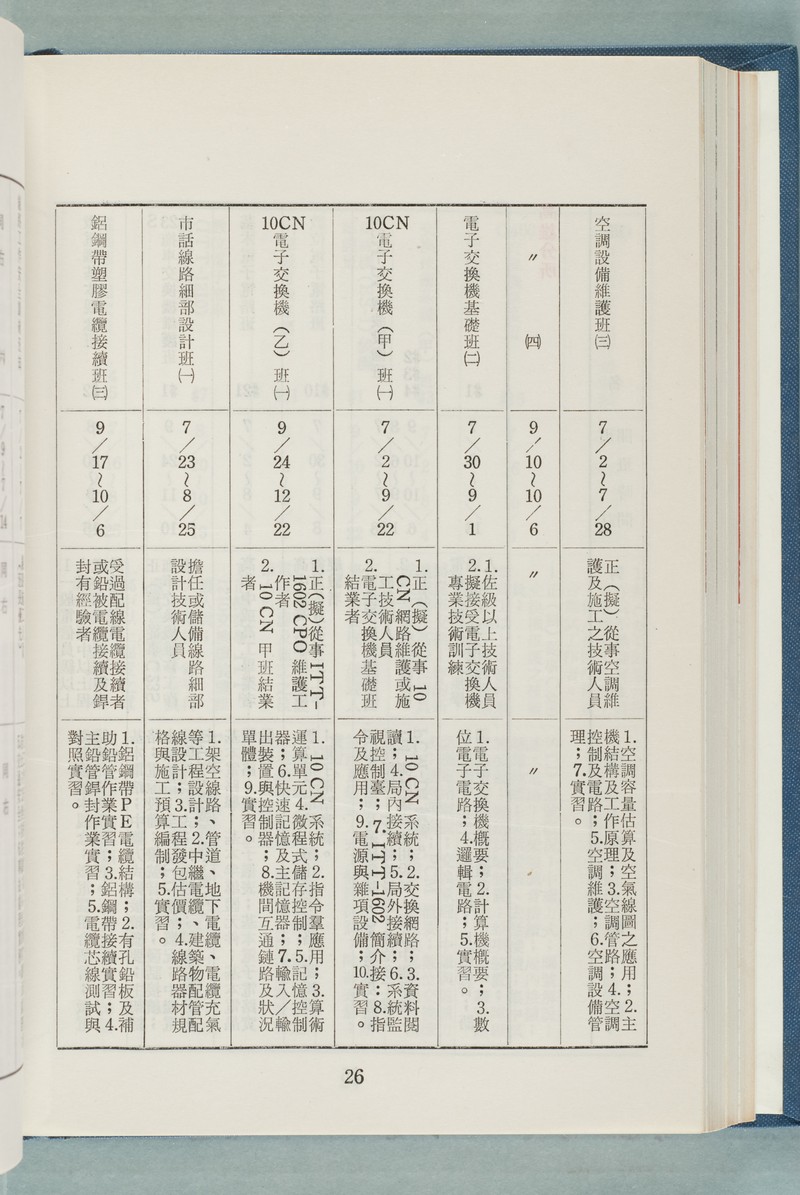 空調設備維護班㈢
7／2～7／28
正（擬）從事空調維
護及施工之技術人員
1.空調容量估算及空氣線圖之應用；2.主
機結構及工作原理；3.空調管路；4.空調
控制及電路；5.空調維護；6.空調設備管
理；7.實習。
〃 ㈣
9／10～10／6
〃
〃
電子交換機基礎班㈡
7／30～9／1
1.佐級以上技術人員
2.擬接受電子交換機
專業技術訓練
1.電子交換機概要；2.計算機概要；3.數
位電子電路；4.邏輯電路；5.實習。
10CN
電子交換機（甲）班㈠
7／2～9／22
1.正（擬）從事 10
CN 網路維護或施
工技術人員
2.電子交換機基礎班
結業者
1. 10 CN 系統；2.交換網路；3.資料閱
讀；4.局內接續；5.局外接續；6.系統監
視控制臺；7.ITT-1602 簡介接：8.指
令及應用；9.電源與雜項設備；10.實習。
10CN
電子交換機（乙）班㈠
9／24～12／22
1.正(擬)從事 ITT-
1602 CPO 維護工
作者
2. 10 CN 甲班結業
者
1. 10 CN 系統；2.指令羣應用；3.算術
運算單元4.微程式儲存控制；5.記憶控制
器；6.快速記憶及主記憶器；7.輸入／輸
出裝置與控制器；8.機間互通鏈路及狀況
單體；9.實習。
市話線路細部設計班㈠
7／23～8／25
擔任或儲備線路細部
設計技術人員
1.架空線路、管道、地下電纜、電纜充氣
等工程設計；2.中繼電纜、建築物配管配
線設計；3.工程發包估價；4.線路器材規
格與施工預算編制；5.實習。
鋁鋼帶塑膠電纜接續班㈢
9／17～10／6
受過配線電纜接續者
或鉛被電纜接續及銲
封有經驗者
1.鋁鋼帶PE電纜結構；2.有孔鉛板及補
助鉛管作業實習；3.鋁鋼帶接續實習；4.
主鉛管銲封作業實習；5.電纜芯線測試與
對照實習。
26